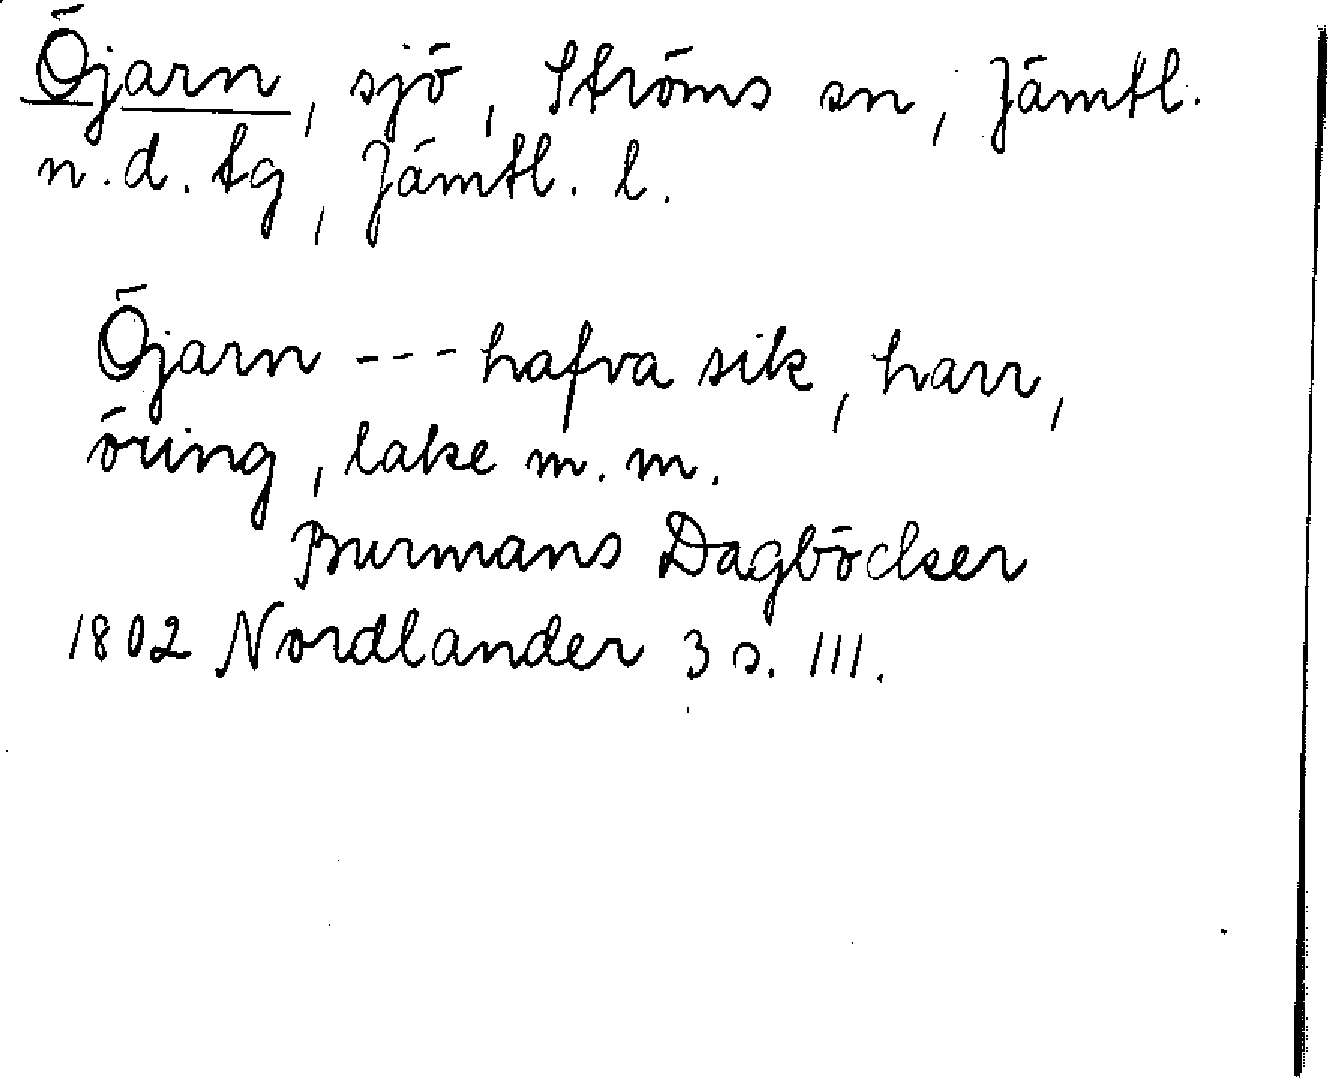 Öjarn, sjö, Ströms sn, Jämtl.
n. d. tg, Jämtl. l.
Öjarn --- hafva sik, harr,
öring, lake m. m.
Burmans Dagböcker
1802 Nordlander 3 s. 111.